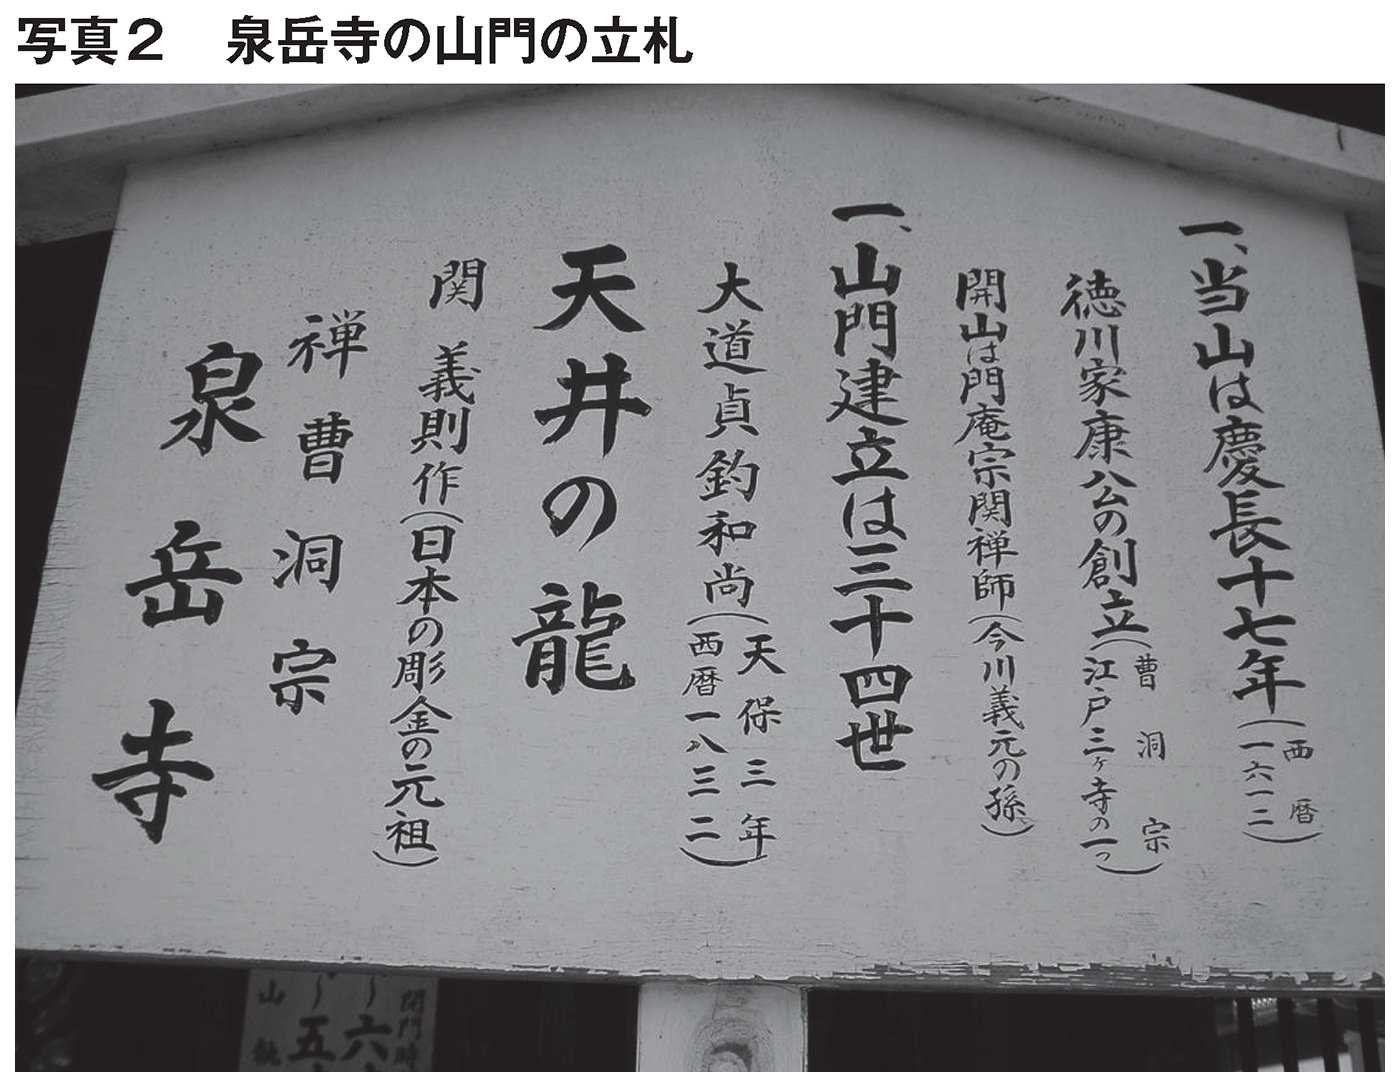 写真２　泉岳寺の山門の立札
一、当山は慶長十七年（西暦一六一二）
徳川家康公の創立（曹洞宗江戸三ヶ寺の一つ）
開山は門庵宗関禅師（今川義元の孫）
一、山門建立は三十四世
大道貞釣和尚（天保三年西暦一八三二）
天井の龍
関義則作（日本の彫金の元祖）
禅曹洞宗
泉岳寺
開門時
～六
～五
山